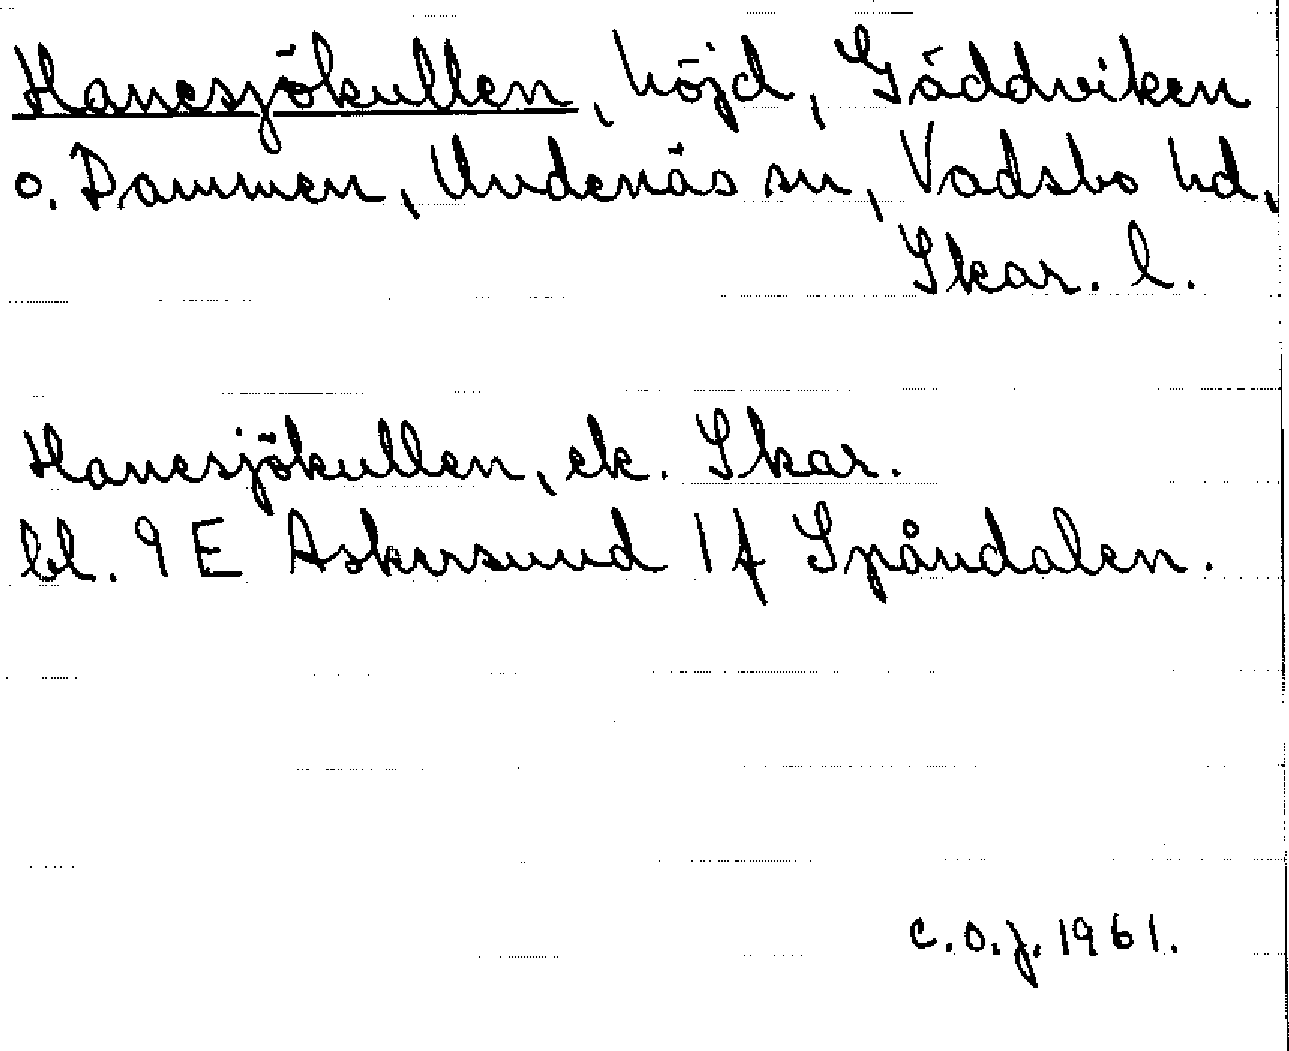 Hanesjökullen, höjd, Gäddviken
o. Dammen, Undenäs sn, Vadsbo hd,
Skar. l.
Hanesjökullen, ek. Skar.
bl. 9 E Askersund 1 f Spåndalen.
C.O.J. 1961.